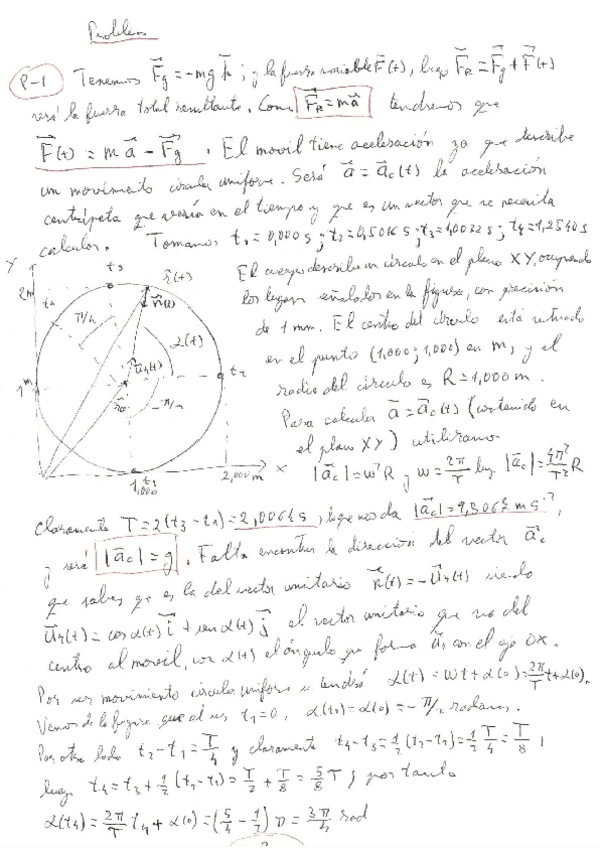 Problem
P-1 Tenemos F⃗g = -mg k⃗ ; y la fuerza variable F⃗(t), luego F⃗R = F⃗g + F⃗(t)
será la fuerza total resultante. Como F⃗R = m a⃗ tendremos que
F⃗(t) = m a⃗ - F⃗g . El movil tiene aceleración ya que describe
un movimiento circular uniforme. Será a⃗ = a⃗c(t) la aceleración
centrípeta que varía en el tiempo y que es un vector que se necesita
calcular. Tomamos t1 = 0,000 s ; t2 = 0,5016 s ; t3 = 1,0032 s ; t4 = 1,2540 s
El cuerpo describe un círculo en el plano XY, ocupando
los lugares señalados en la figura, con precisión
de 1 mm. El centro del círculo está situado
en el punto (1,000 ; 1,000) en m, y el
radio del círculo es R = 1,000 m.
Para calcular a⃗ = a⃗c(t) (contenido en
el plano XY) utilizamos
|a⃗c| = ω²R y ω = 2π/T luego |a⃗c| = 4π²/T² R
Y
2m
t3
r⃗(t)
t4
n⃗(t)
π/4
α(t)
u⃗r(t)
1m
t2
r⃗0
-π/2
t1
1,000
2,000 m
X
Claramente T = 2(t3 - t1) = 2,0064 s , que nos da |a⃗c| = 9,8064 m s⁻² ,
y será |a⃗c| = g . Falta encontrar la dirección del vector a⃗c
que sabemos que es la del vector unitario n⃗(t) = -u⃗r(t) siendo
u⃗r(t) = cos α(t) i⃗ + sen α(t) j⃗ el vector unitario que va del
centro al movil, con α(t) el ángulo que forma u⃗r con el eje OX.
Por ser movimiento circular uniforme se tendrá α(t) = ωt + α(0) = 2π/T t + α(0).
Vemos de la figura que al ser t1 = 0, α(t1) = α(0) = -π/2 radianes.
Por otro lado t2 - t1 = T/4 y claramente t4 - t3 = 1/2 (t2 - t1) = 1/2 T/4 = T/8 ,
luego t4 = t3 + 1/2 (t2 - t1) = T/2 + T/8 = 5/8 T ; por tanto
α(t4) = 2π/T t4 + α(0) = (5/4 - 1/2) π = 3π/4 rad